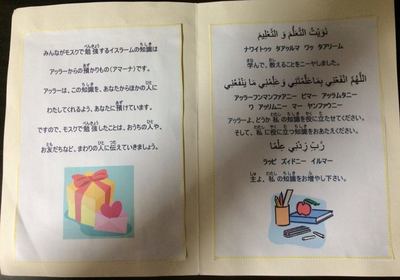 みんながモスクで勉強するイスラームの知識は
アッラーからの預かりもの(アマーナ)です。
アッラーは、この知識を、あなたからほかの人に
わたしてくれるよう、あなたに預けています。
ですので、モスクで勉強したことは、おうちの人や、
お友だちなど、まわりの人に伝えていきましょう。
نَوَيْتُ التَّعَلُّمَ وَ التَّعْلِيمَ
ナワイトゥッ タアッルマ ワッ タアリーム
学んで、教えることをニーヤしました。
اَللَّهُمَّ انْفَعْنِي بِمَا عَلَّمْتَنِي وَعَلِّمْنِي مَا يَنْفَعُنِي
アッラーフンマンファアニー ビマー アッラムタニー
ワ アッリムニー マー ヤンファウニー
アッラーよ、どうか私の知識を役に立たせてください。
そして、私に役に立つ知識をおあたえください。
رَبِّ زِدْنِي عِلْمًا
ラッビ ズィドニー イルマー
主よ、私の知識をお増やし下さい。